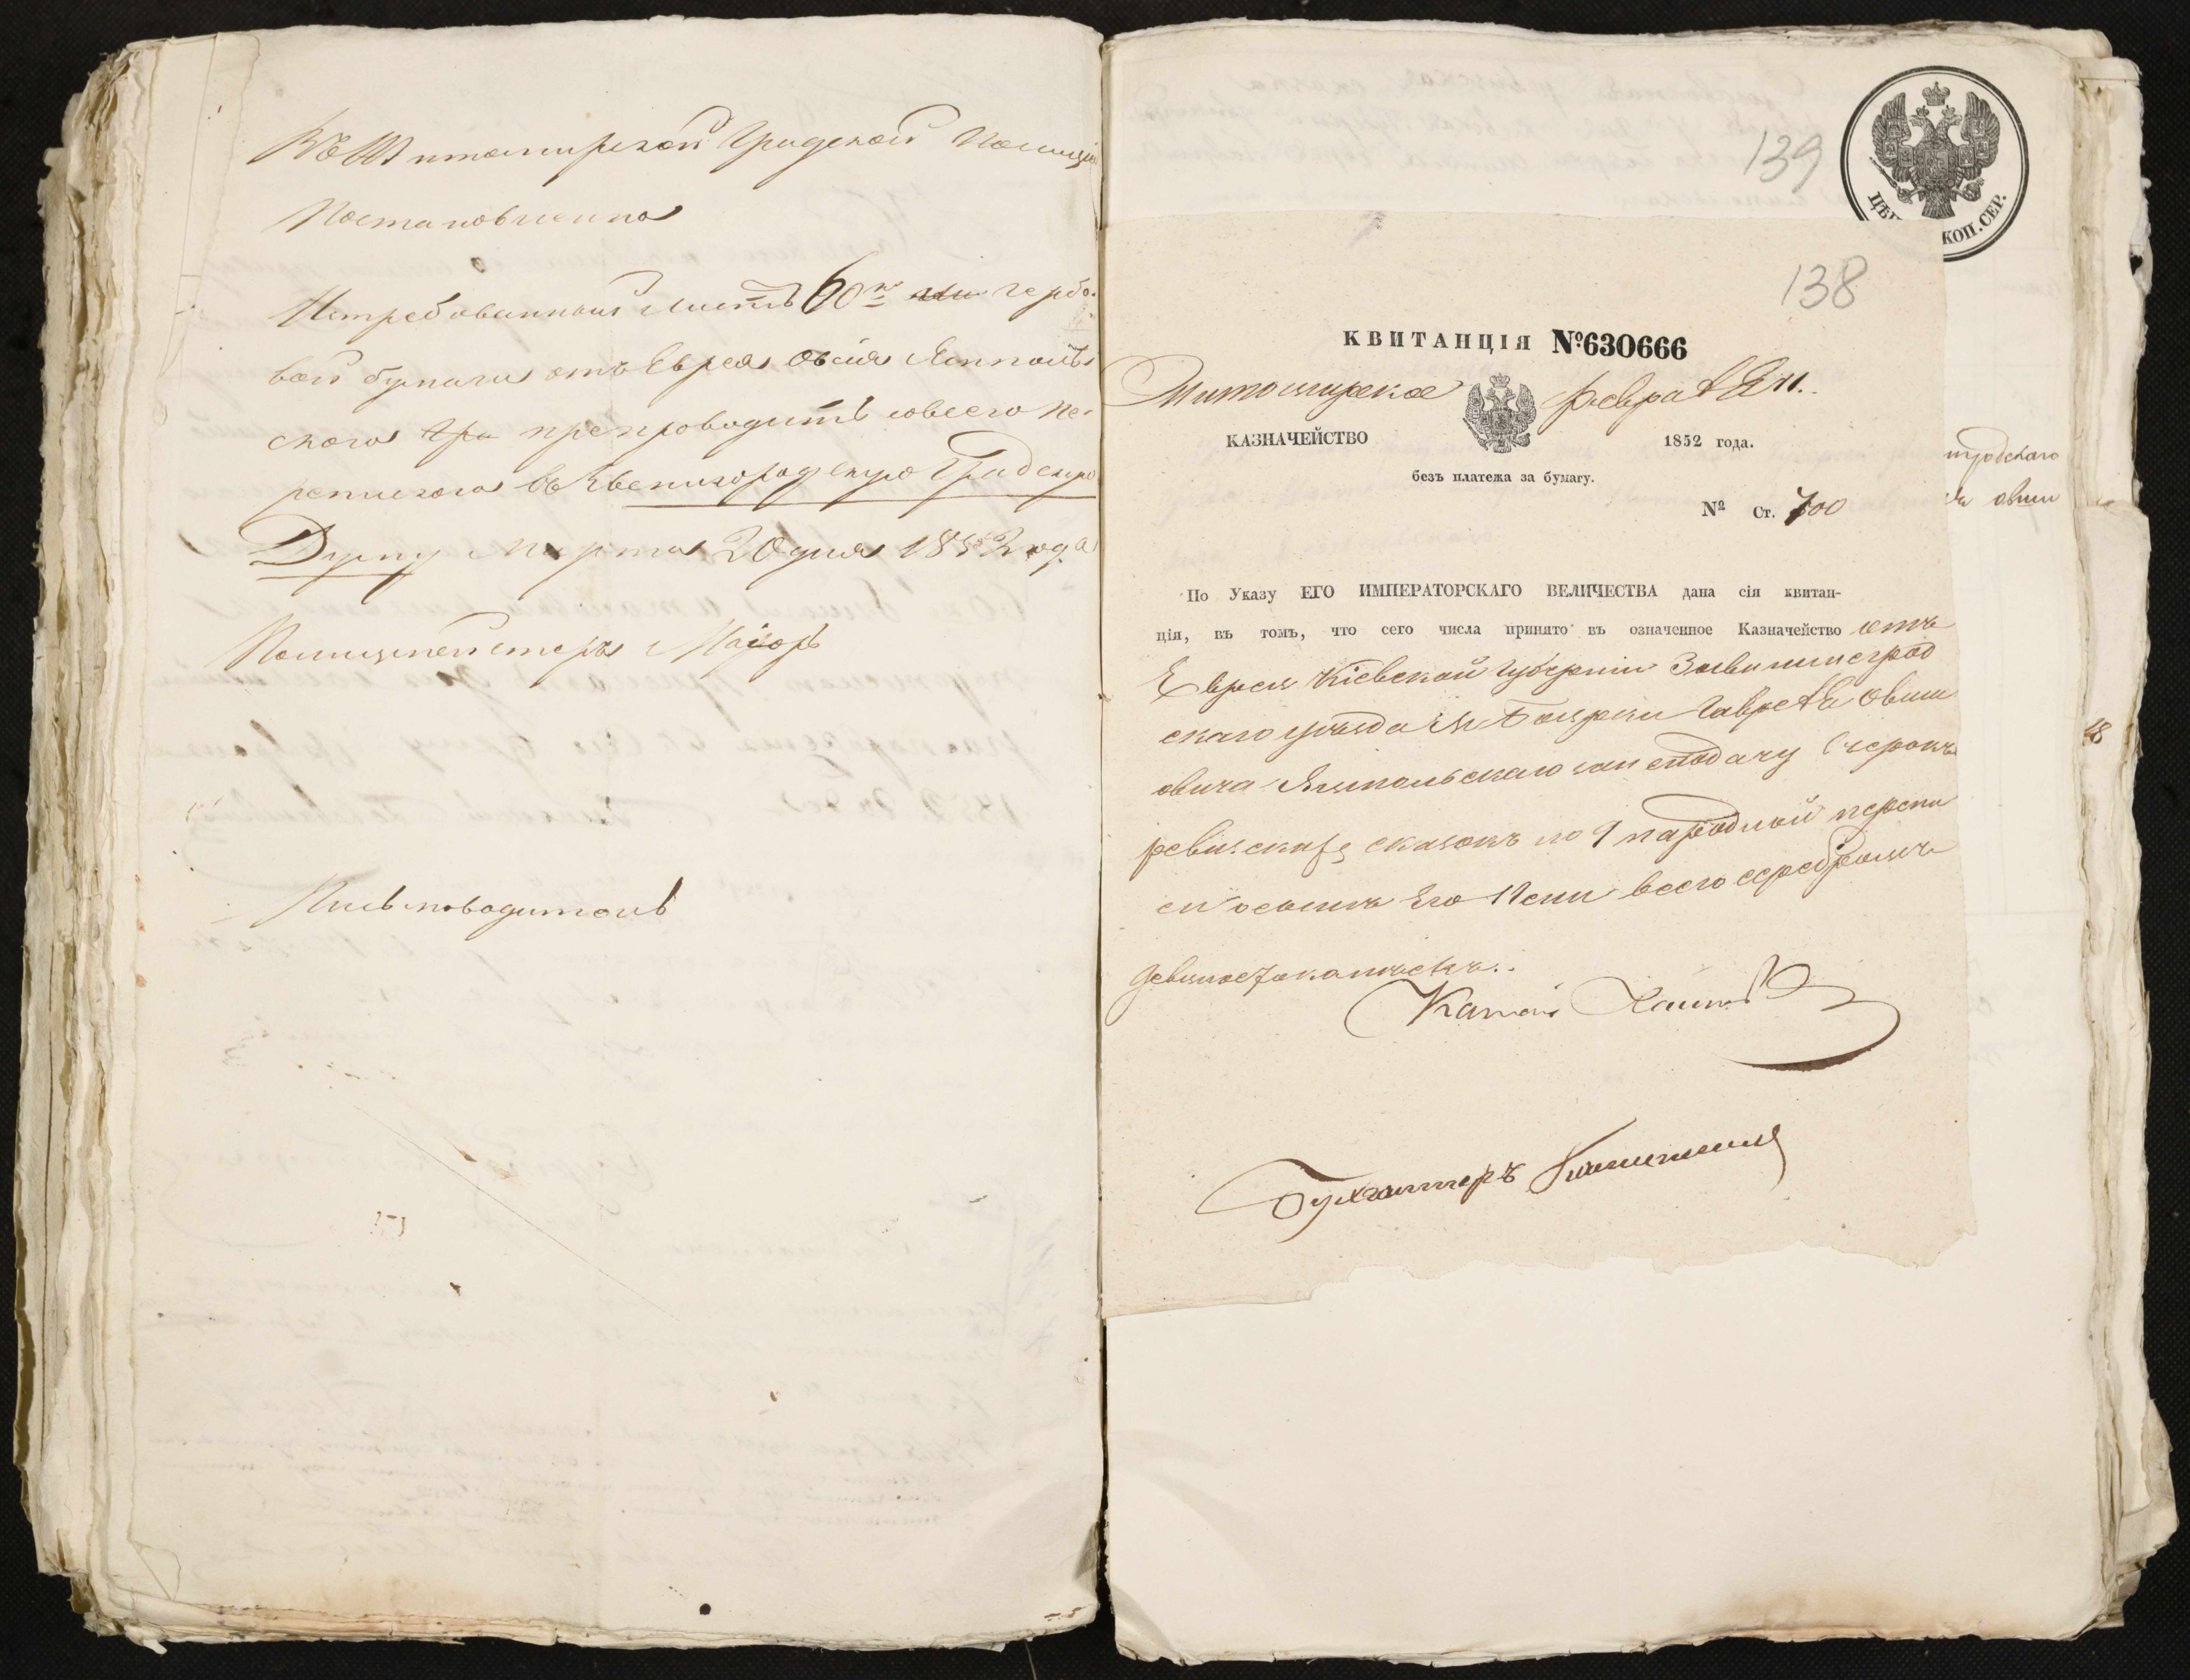 Въ Житомирской Градской Полиціи
Постановлено
Истребованный листъ 60 ко гербо-
вой бумаги отъ Еврея Овсія Ямполь
ского препроводить со всею пе-
репискою въ Звенигородскую Градскую
Думу Марта 20 дня 1852 года
Полицмейстеръ Маіоръ
Письмоводитель
139
ЦѢН КОП. СЕР.
138
КВИТАНЦІЯ №630666
Житомирское Февра
КАЗНАЧЕЙСТВО 1852 года.
безъ платежа за бумагу.
№ Ст. 700
По Указу ЕГО ИМПЕРАТОРСКАГО ВЕЛИЧЕСТВА дана сія квитан-
ція, въ томъ, что сего числа принято въ означенное Казначейство отъ
Еврея Кіевской Губерніи Звининеград
скаго уѣзда М Боярки Овши
овича Ямпольскаго подачу
ревизскихъ сказокъ по 9 народной перепи
си осьмъ Его Пени всего серебромъ
девяносто копѣекъ.
Бухгалтеръ
городскаго
овши